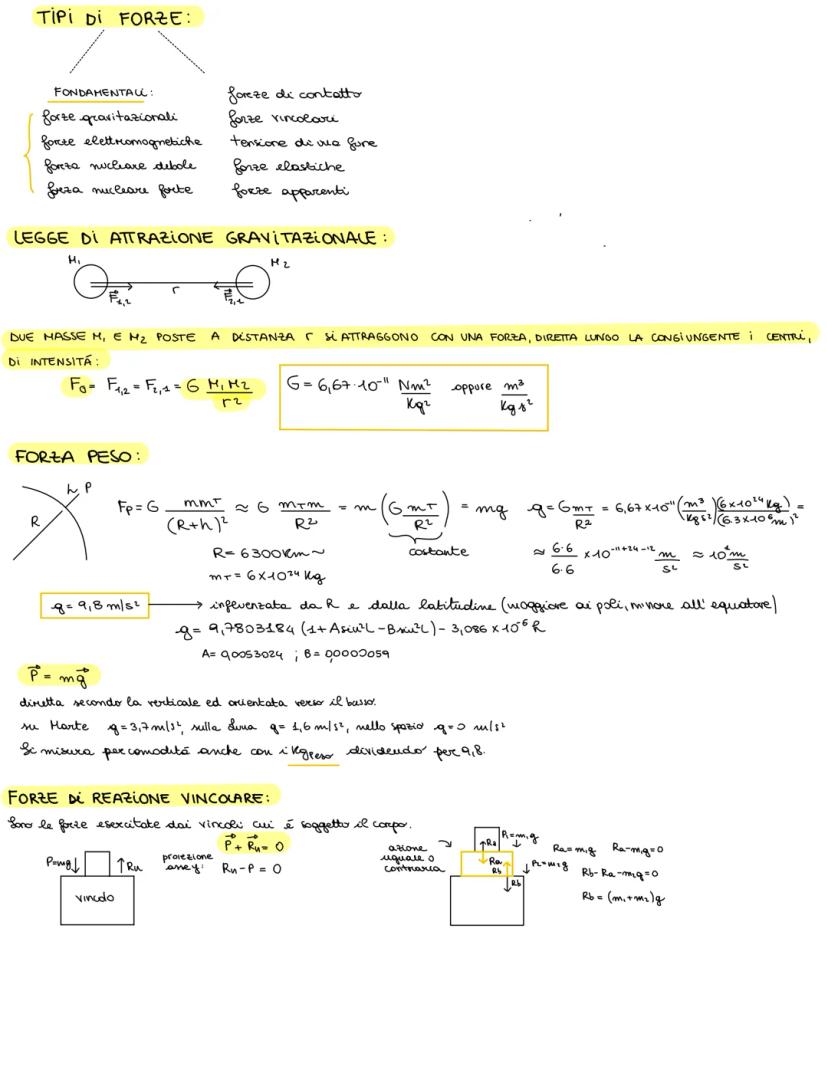 TIPI DI FORZE:
FONDAMENTALI:
forze gravitazionali
forze elettromagnetiche
forza nucleare debole
forza nucleare forte
forze di contatto
forze vincolari
tensione di una fune
forze elastiche
forze apparenti
LEGGE DI ATTRAZIONE GRAVITAZIONALE:
M₁ M₂
F⃗₁,₂ r F⃗₂,₁
DUE MASSE M₁ E M₂ POSTE A DISTANZA r SI ATTRAGGONO CON UNA FORZA, DIRETTA LUNGO LA CONGIUNGENTE i CENTRI,
DI INTENSITÁ:
Fg = F₁,₂ = F₂,₁ = G M₁M₂/r²
G = 6,67·10⁻¹¹ Nm²/Kg² oppure m³/Kg s²
FORZA PESO:
R h P
Fp = G mmT/(R+h)² ≈ G mTm/R² = m (G mT/R²) = mg
costante
g = G mT/R² = 6,67×10⁻¹¹ (m³/Kg s²) (6×10²⁴ Kg)/(6.3×10⁶ m)² =
R = 6300Km ~
mT = 6×10²⁴ Kg
≈ 6·6/6·6 ×10⁻¹¹⁺²⁴⁻¹² m/s² ≈ 10¹ m/s²
g = 9,8 m/s² → influenzata da R e dalla latitudine (maggiore ai poli, minore all'equatore)
g = 9,7803184 (1+Asin²L-Bsin²L) - 3,086×10⁻⁶ R
A= 0,0053024 ; B= 0,0000059
P⃗ = mg⃗
diretta secondo la verticale ed orientata verso il basso.
su Marte g=3,7m/s², sulla Luna g= 1,6m/s², nello spazio g=0 m/s²
Si misura per comodità anche con i Kgpeso dividendo per 9,8.
FORZE DI REAZIONE VINCOLARE:
Sono le forze esercitate dai vincoli cui é soggetto il corpo.
P=mg↓ ↑Rn
vincolo
proiezione
asse y:
P⃗ + R⃗n = 0
Rn-P = 0
azione
uguale o
contraria
P₁=m₁g
↑Ra
Ra
Rb
↓P₂=m₂g
↓Rb
Ra=m₁g Ra-m₁g=0
Rb-Ra-m₂g=0
Rb=(m₁+m₂)g